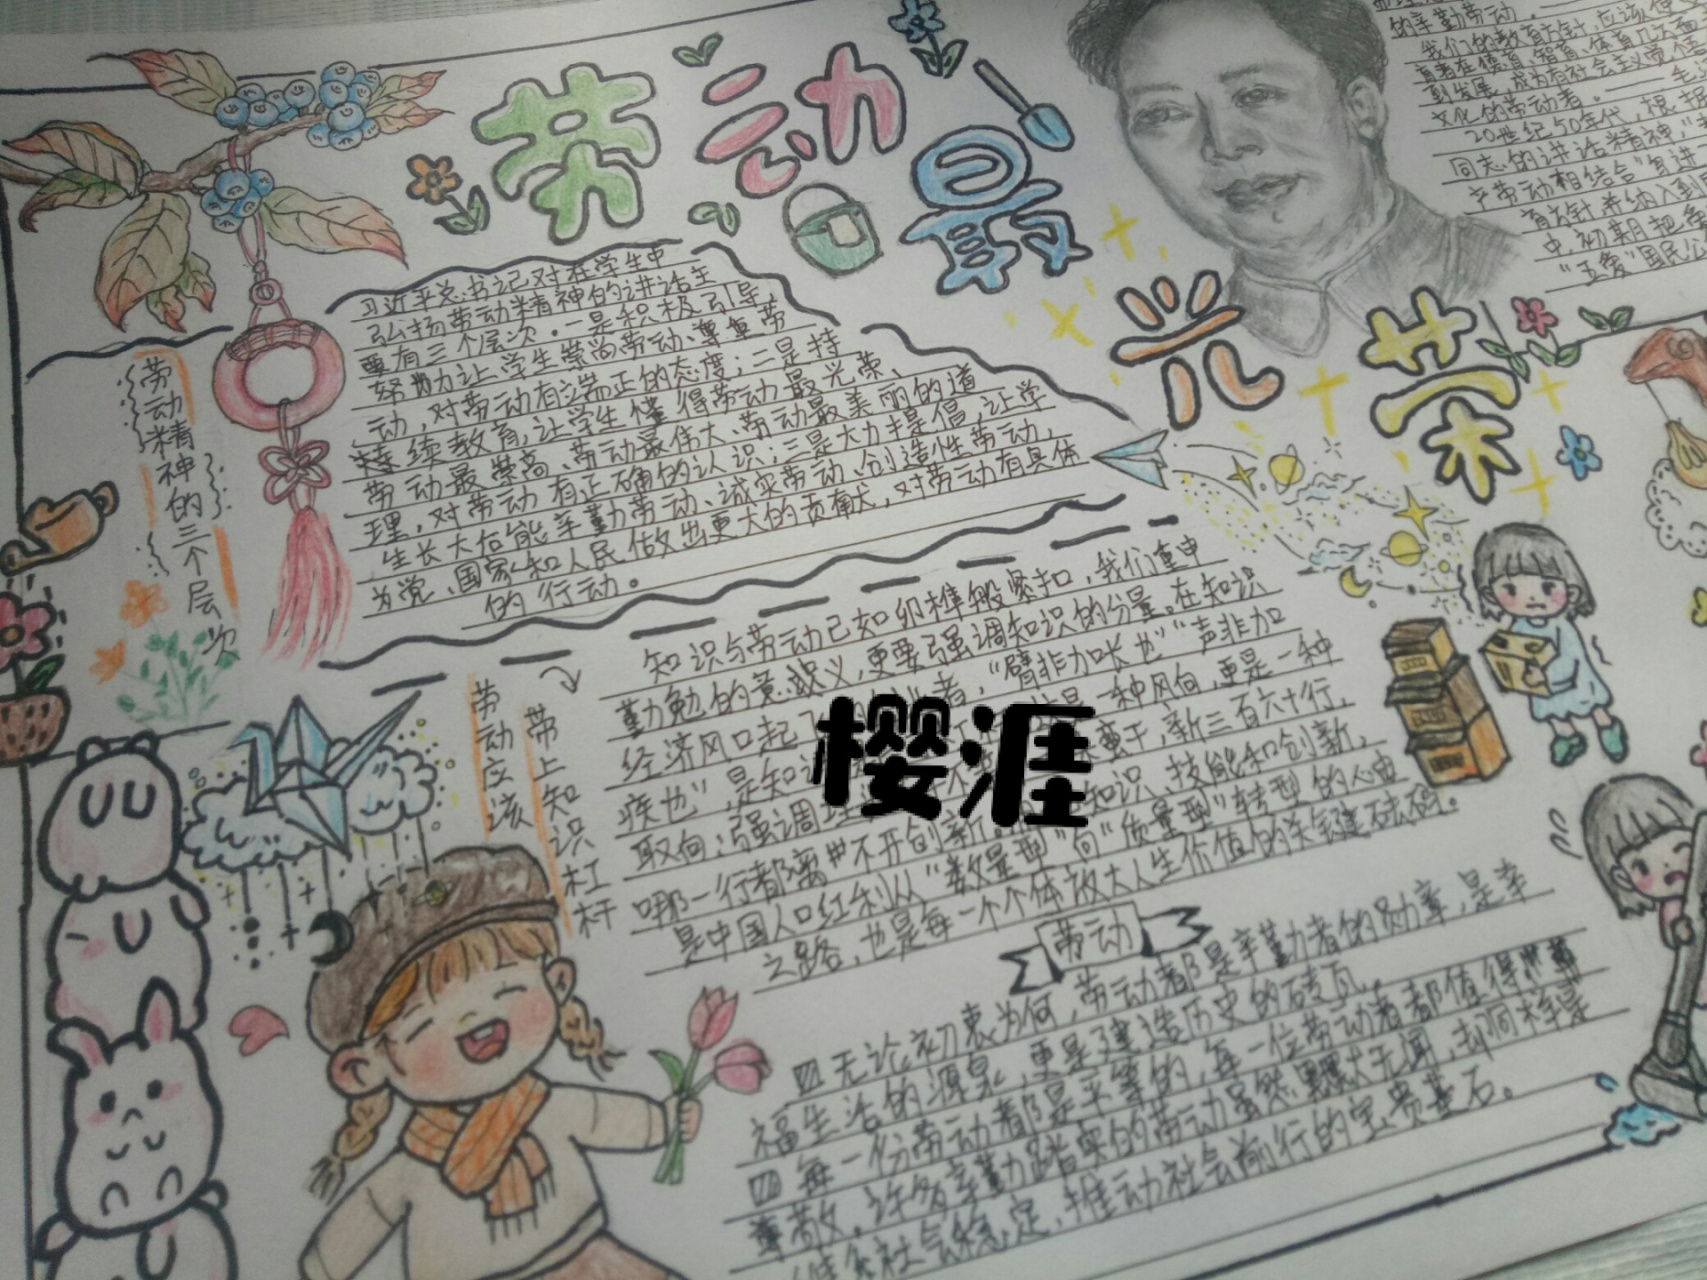 劳动最光荣
的辛勤劳动。
我们的教育方针,应该使受
育者在德育、智育、体育几方面
到发展,成为有社会主义觉悟
文化的劳动者。
20世纪50年代,根据
同志的讲话精神,
产劳动相结合"写进
育方针并纳入到
中,初期把
"五爱"国民公
劳动精神的三个层次
习近平总书记对在学生中
弘扬劳动精神的讲话主
要有三个层次。一是积极引导
努力让学生崇尚劳动、尊重劳
动,对劳动有端正的态度;二是持
续教育,让学生懂得劳动最光荣、
劳动最崇高、劳动最伟大、劳动最美丽的道
理,对劳动有正确的认识;三是大力提倡,让学
生长大后能辛勤劳动、诚实劳动、创造性劳动,
为党、国家和人民做出更大的贡献,对劳动有具体
的行动。
劳动应该
带上知识杠杆
知识与劳动已如卯榫般紧扣,我们重申
勤勉的意义,更要强调知识的分量。在知识
经济风口起 者,"臂非加长也""声非加
疾也",是知 一种风向,更是一种
取向;强调 干,新三百六十行,
哪一行都离不开创新 知识、技能和创新,
是中国人口红利从"数量型"向"质量型"转型的必由
之路,也是每一个个体放大人生价值的关键砝码。
樱涯
劳动
无论初衷为何,劳动都是辛勤者的勋章,是幸
福生活的源泉,更是建造历史的砖瓦。
每一份劳动都是平等的,每一位劳动者都值得尊
敬。许多辛勤踏实的劳动虽然默默无闻,却同样是
社会稳定,推动社会前行的宝贵基石。